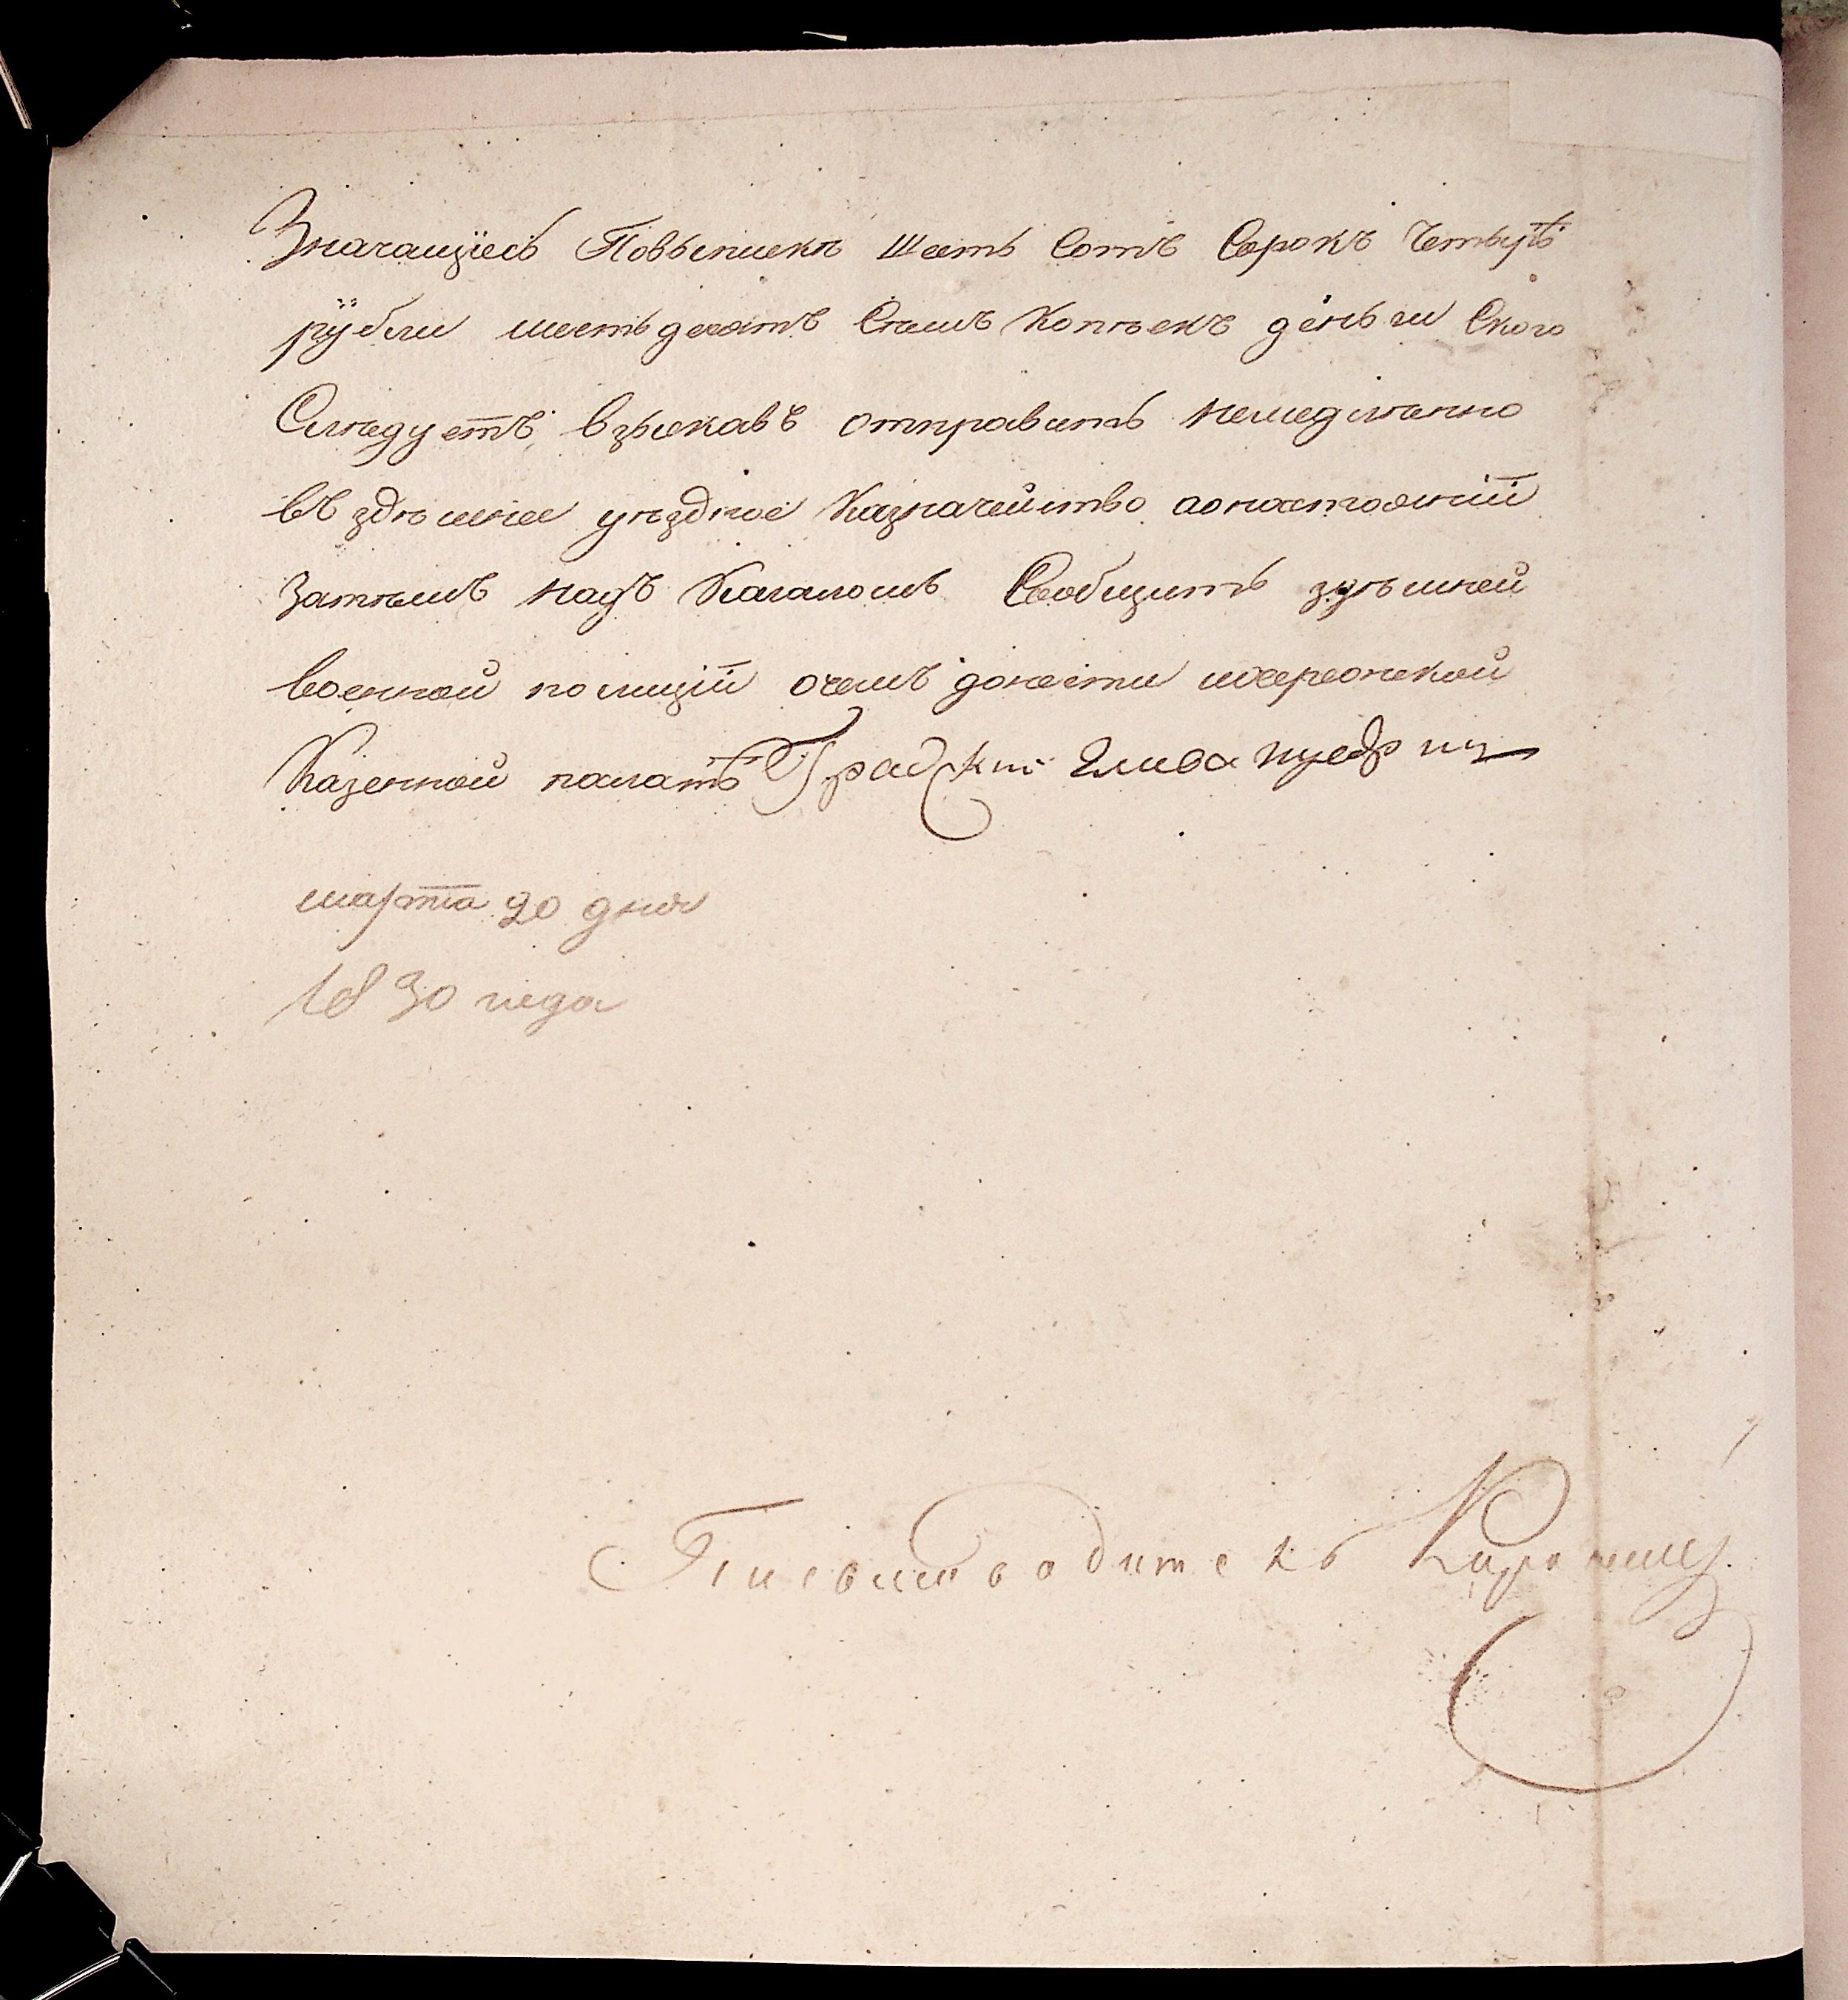 Значащіесь Повыпискѣ Шесть Сотъ Сорокъ Четырѣ
рубли шестьдесятъ Семъ Копѣекъ деньги Ского
Слѣдуетъ, взыскавъ отправить немедлѣнно
въ здѣшнее уѣздное Казначейство аонастояній
затѣмъ надъ Кагаломъ Сообщить здѣшней
военной полиціи очемъ донести ихерсонской
Казенной палатѣ Градскій Глава
марта 20 дня
1830 года
Писмоводитель